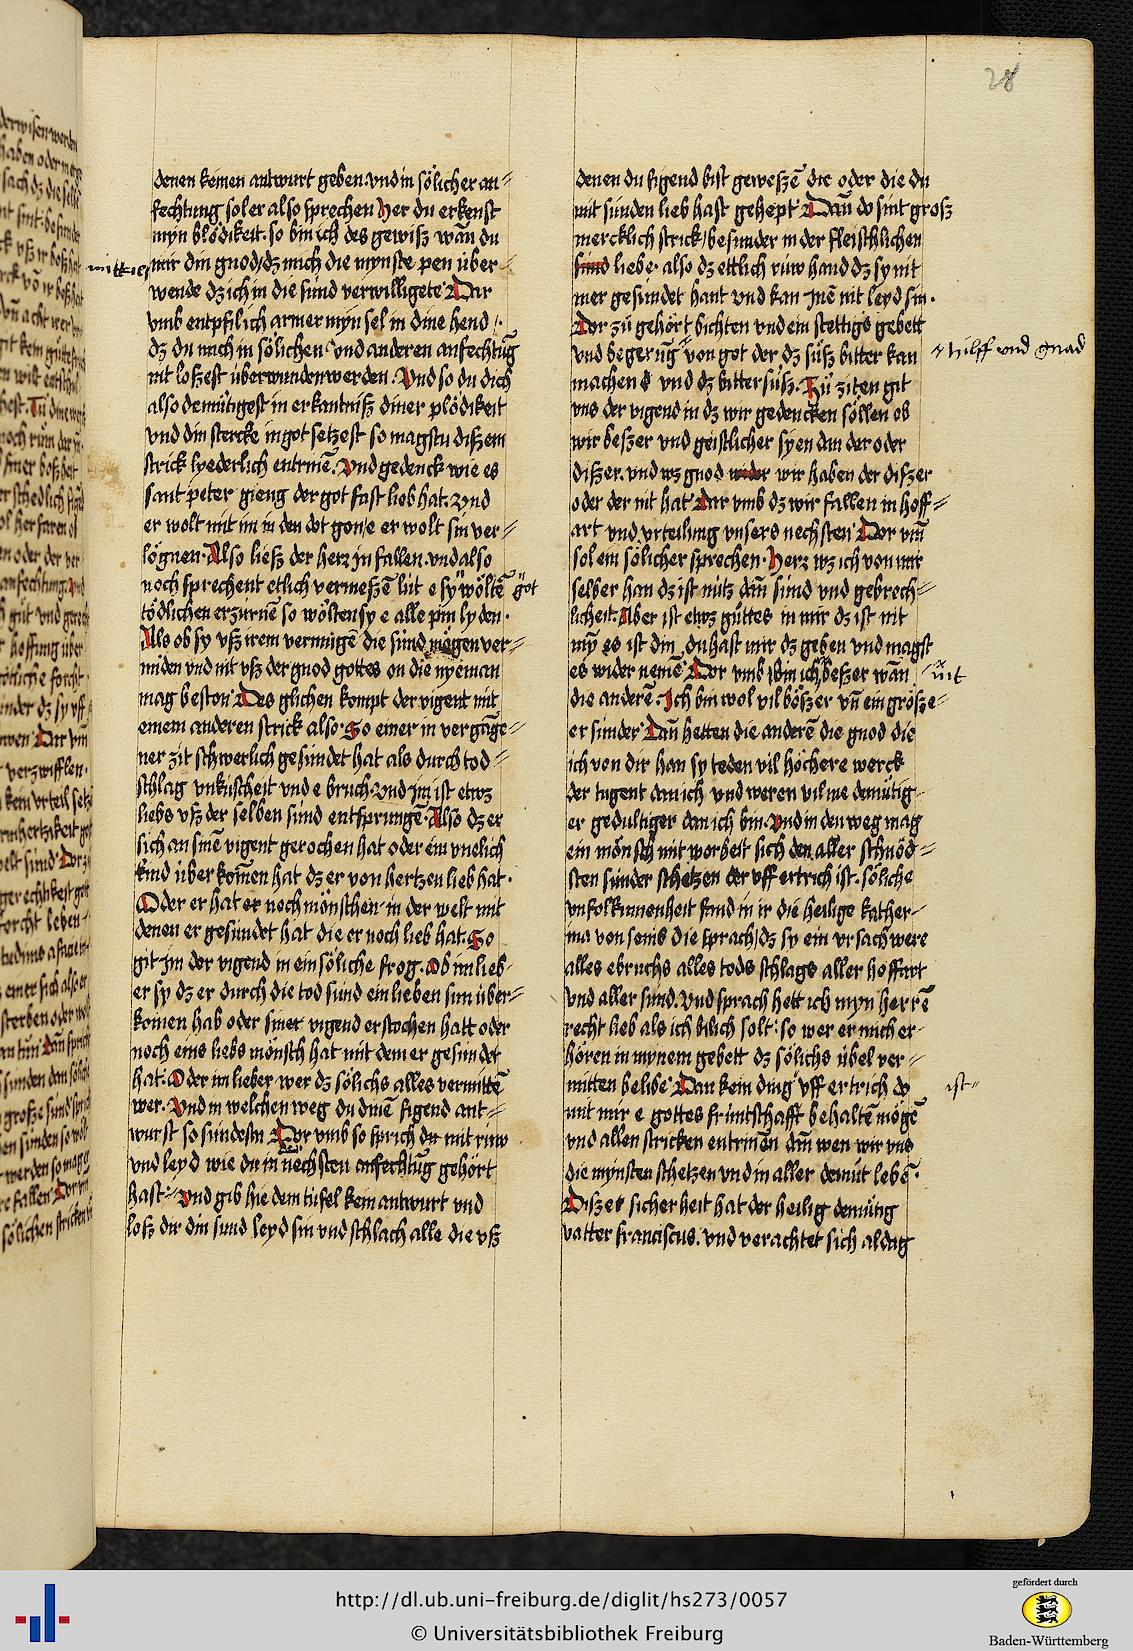 28
denen keinen antwurt geben. vnd in sölicher an-
fechtung sol er also sprechen Her du erkenst
myn blödikeit. so bin ich des gewisz wān du
mittiest
mir din gnod / dz mich die mynste pen über-
wende dz ich in die sünd verwilligete Dar
vmb entpfilich armer myn sel in dine hend /.
dz du mich in sölichen vnd anderen anfechtūg
nit loszest überwunden werden. Vnd so du dich
also demütigest in erkantnisz diner plödikeit
vnd din stercke in got setzest so magstu diszem
strick lyederlich entrinē. Vnd gedenck wie es
sant peter gieng der got fast lieb hat. Vnd
er wolt mit im in den dot gon / e er wolt sin ver-
lögnen. Also liesz der herz jn fallen. vnd also
noch sprechent etlich vermeszē lüt e sy wöltē got
tödlichen erzurnē so wölten sy e alle pin lyden.
Als ob sy vsz irem vermügē die sünd mögen ver-
miden vnd nit vsz der gnod gottes on die nyeman
mag beston Des glichen kompt der vigent mit
einem anderen strick also. So einer in vergāge-
ner zit schwerlich gesündet hat als durch tod-
schlag vnküscheit vnd e bruch. Vnd jm ist etwz
liebs vsz der selben sünd entsprungē. Also dz er
sich an sinē vigent gerochen hat oder ein vnelich
kind über komen hat dz er von hertzen lieb hat.
Oder er hat er noch mönschen in der welt mit
denen er gesündet hat die er noch lieb hat. So
git jm der vigend in ein söliche frog. Ob im lieb-
er sy dz er durch die tod sünd ein lieben sun über-
komen hab oder siner vigend erstochen hatt oder
noch eins liebs mönsch hat mit dem er gesündet
hat. Oder im lieber wer dz sölichs alles vermittē
wer. Vnd in welchen weg du dinē figend ant-
wurst so sündestu Dor vmb so sprich du mit rüw
vnd leyd wie du in nechsten anfechtūg gehört
hast. Vnd gib hie dem tüfel kein antwurt vnd
losz dir din sund leyd sin vnd schlach alle die vsz
denen du figend bist geweszē die oder die du
mit sünden lieb hast gehept Dan do sint grosz
mercklich strick / besunder in der fleischlichen
sünd liebe. also dz ettlich rüw hand dz sy nit
mer gesündet hant vnd kan jnē nit leyd sin.
Dor zü gehört bichten vnd ein stettigs gebett
vnd begerūg von got der dz süsz bitter kan
hilff vnd gnad
machen vnd dz bitter süsz. Zü ziten git
vns der vigend in dz wir gedencken söllen ob
wir beszer vnd geistlicher syen dan der oder
diszer. vnd wz gnod wider wir haben der diszer
oder der nit hat Dar vmb dz wir fallen in hoff-
art vnd vrteilung vnsers nechsten Dor vm̄
sol ein sölicher sprechen. Herz wz ich von mir
selber han dz ist nütz dan sünd vnd gebrech-
licheit. Aber ist etwz güttes in mir dz ist nit
myn es ist din du hast mir dz geben vnd magst
es wider nemē Dor vmb bin ich beszer wan
nit
die anderē. Ich bin wol vil böszer vn̄ ein grösze-
er sünder Dan hetten die anderē die gnod die
ich von dir han sy teden vil höchere werck
der tugent dan ich vnd weren vil me demütig-
er gedultiger dan ich bin. Vnd in den weg mag
ein mönsch mit worheit sich den aller schnöd-
sten sünder schetzen der vff ertrich ist. söliche
vnfolkumenheit fand in ir die heilige kather-
ina von senis die sprach / dz sy ein vrsach were
alles ebruchs alles tods schlags aller hoffart
vnd aller sünd. vnd sprach hett ich myn herrē
recht lieb als ich bilich solt: so wer er mich er-
hören in mynem gebett dz sölichs übel ver-
mitten belibe Dan kein ding vff ertrich do
ist
mit mir e gottes früntschafft behaltē mögē
vnd allen stricken entrinen dan wen wir vns
die mynsten schetzen vnd in aller demut lebē.
Diszes sicherheit hat der heilig demütig
vatter franciscus. vnd verachtet sich al dag
http://dl.ub.uni-freiburg.de/diglit/hs273/0057
© Universitätsbibliothek Freiburg
gefördert durch
Baden-Württemberg